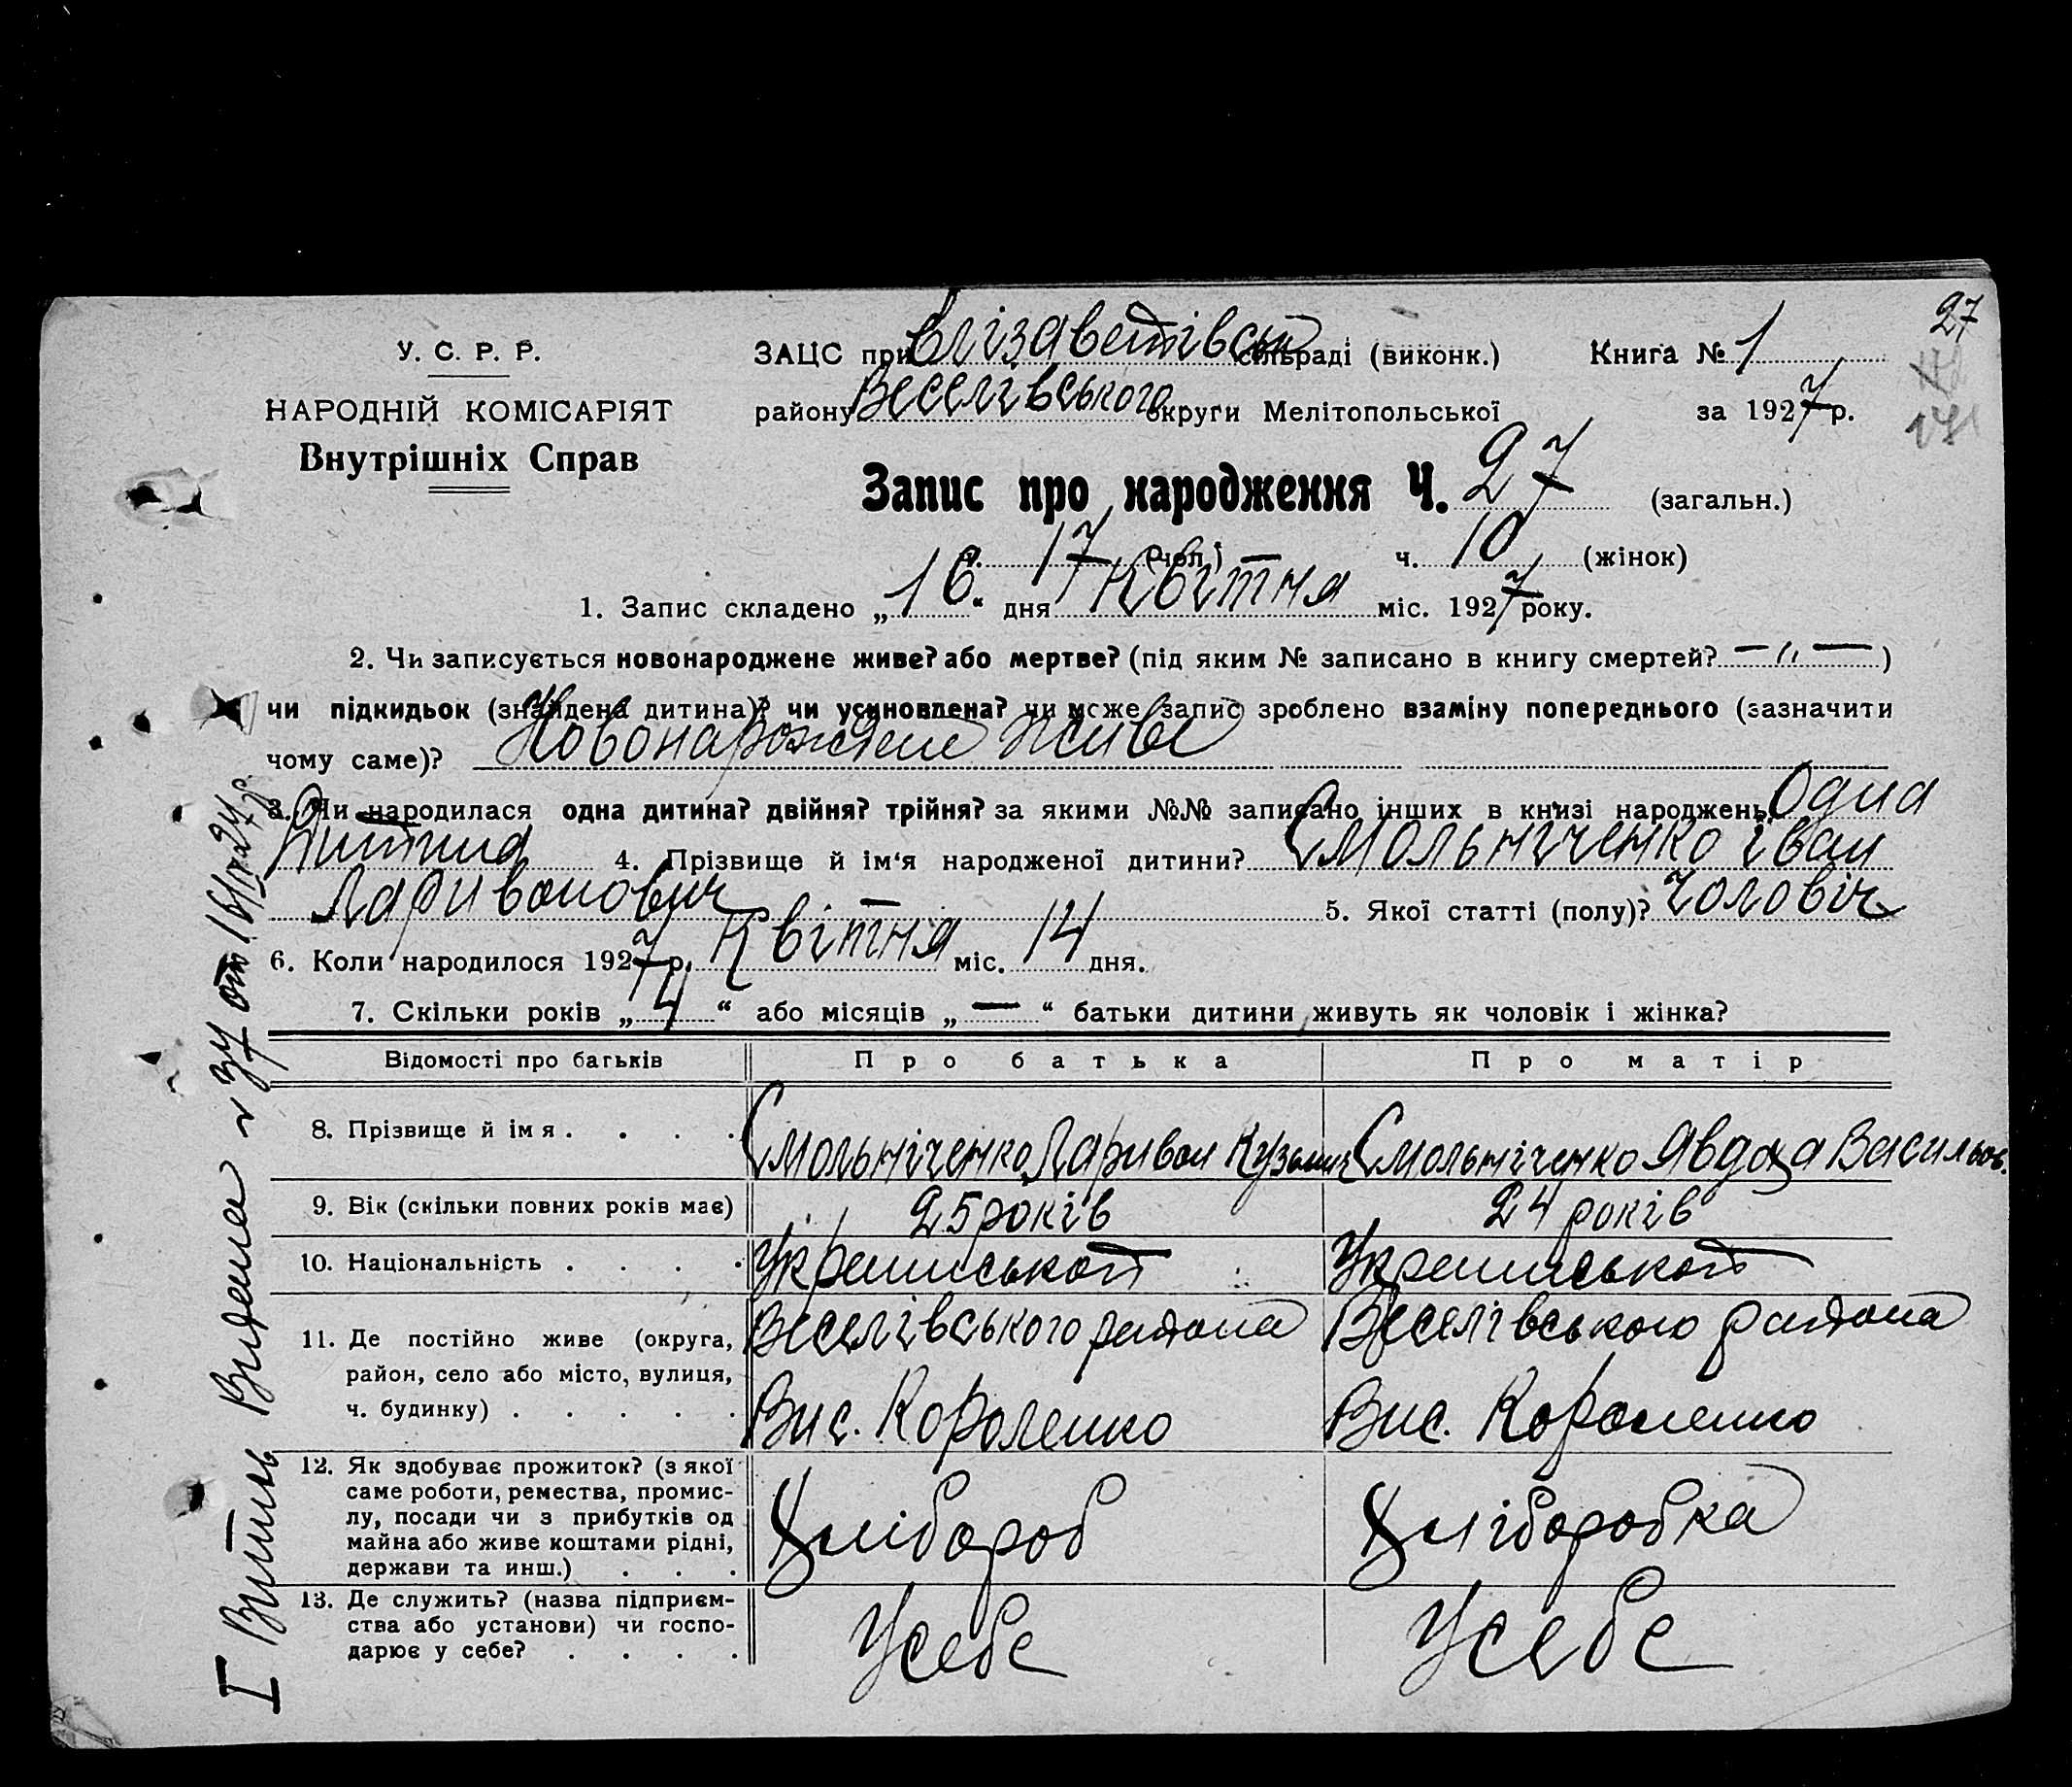 27
У. С. Р. Р.
НАРОДНІЙ КОМІСАРІЯТ
Внутрішніх Справ
ЗАЦС при Єлізаветівськ сільраді (виконк.) Книга № 1
району Веселівського округи Мелітопольської за 1927 р.
171
Запис про народження Ч. 27 (загальн.)
ч. 17 (чол.) ч. 10 (жінок)
1. Запис складено „16“ дня Квітня міс. 1927 року.
2. Чи записується новонароджене живе? або мертве? (під яким № записано в книгу смертей? — „ — )
чи підкидьок (знайдена дитина)? чи усиновлена? чи може запис зроблено взаміну попереднього (зазначити
чому саме)? Новонарождене живе
3. Чи народилася одна дитина? двійня? трійня? за якими №№ записано інших в книзі народжень Одна
Дитина 4. Прізвище й ім‘я народженої дитини? Смольніченко Іван
Ларивонович 5. Якої статті (полу)? Чоловіч
6. Коли народилося 1927 р. Квітня міс. 14 дня.
7. Скільки років „4“ або місяців „—“ батьки дитини живуть як чоловік і жінка?
Відомості про батьків Про батька Про матір
8. Прізвище й імя . . . . Смольніченко Ларивон Кузьмич Смольніченко Явдоха Васильов.
9. Вік (скільки повних років має) 25 років 24 років
10. Національність . . . . Украинської Украинської
11. Де постійно живе (округа, район, село або місто, вулиця, ч. будинку) . . . . . Веселівського района Вис. Короленко Веселівського района Вис. Короленко
12. Як здобуває прожиток? (з якої саме роботи, ремества, промислу, посади чи з прибутків од майна або живе коштами рідні, держави та инш.) . . . Хлібороб Хліборобка
13. Де служить? (назва підприємства або установи) чи господарює у себе? . . . . Усебе Усебе
I Витяг Видана № 37 от 16/IV 27 р.